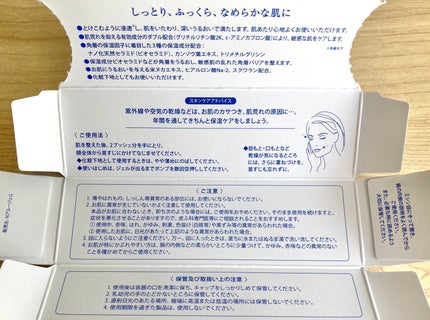 しっとり、ふっくら、なめらかな肌に
●とけこむように浸透*し、肌をいたわり、深いうるおいで満たします。肌あたり心地よくお使いいただけます。
●肌荒れを抑える有効成分のダブル配合(グリチルリチン酸2K、ε-アミノカプロン酸)により、敏感な肌をケアします。
*角層まで
●角層の保湿因子に着目した3種の保湿成分配合:
ナノ化天然セラミド(ビオセラミド)、カンゾウ葉エキス、トリメチルグリシン
●保湿成分ビオセラミドなどが角層をうるおし、敏感肌の乱れた角層バリアを整えます。
●お肌にうるおいを与える米ヌカエキス、ヒアルロン酸Na-2、スクワラン配合。
●化粧下地としてもお使いいただけます。
スキンケアアドバイス
紫外線や空気の乾燥などは、お肌のカサつき、肌荒れの原因に…。
年間を通してきちんと保湿ケアをしましょう。
〈ご使用法〉
肌を整えた後、2プッシュ分を手にとり、
顔全体から首すじにかけてなじませてください。
◆化粧下地として使用するときは、やや薄めにのばしてください。
◆使いはじめは、ジェルが出るまでポンプを数回空押ししてください。
◆目もと・口もとなど
乾燥が気になるところ
には、さらに重ねづけ。
首すじも忘れずに。
〈ご注意〉
1. 傷やはれもの、しっしん等異常のある部位には、お使いにならないでください。
2. お肌に異常が生じていないかよく注意して使用してください。
本品がお肌に合わないとき、即ち次のような場合には、ご使用をおやめください。そのまま使用を続けますと、
症状を悪化させることがありますので、皮ふ科専門医等にご相談されることをおすすめします。
①使用中、赤味、はれ、かゆみ、刺激、色抜け(白斑等)や黒ずみ等の異常があらわれた場合。
②使用したお肌に、日光があたって上記のような異常があらわれた場合。
3. 目に入らないようにご注意ください。万一、目に入ったときは、直ちに水またはぬるま湯で洗い流してください。
4. お肌が特にかぶれやすい方は、腕の内側などの柔らかいところに少量つけて、かゆみ、赤味などの異常のない
ことを確かめてからご使用ください。
〈保管及び取扱い上の注意〉
1. 使用後は容器の口を清潔に保ち、キャップをしっかりしめて保管してください。
2. 乳幼児の手のとどかないところに保管してください。
3. 直射日光のあたる場所、極端に高温または低温の場所には保管しないでください。
4. 使用期限を過ぎた製品は、使用しないでください。